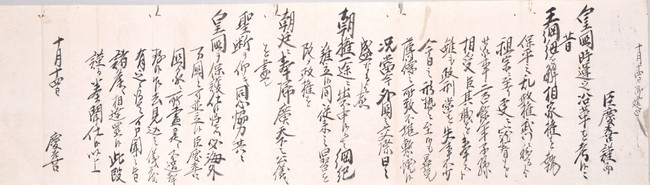 十月十四日
臣慶喜謹而
皇國時運之沿革を考候に
昔
王綱紐を解き相家權を執り
保平之乱政權武門に移りてより
祖宗に至り更に寵眷を
蒙り二百餘年子孫
相受臣其職を奉すと
雖も政刑當を失ふこと不少
今日之形勢に至候も畢竟
薄徳之所致不堪慙懼候
況や當今外國之交際日に
盛なるにより愈
朝權一途に出不申候而者綱紀
難立候間従来之舊習を
改め政權を
朝廷に奉歸廣く天下之公議
を盡し
聖断を仰き同心協力共に
皇國を保護仕候得は必す海外
万國と可並立候臣慶喜
國家に所盡是に不過と奉存候
乍去猶見込之儀も
有之候得者可申聞旨
諸侯江相達置候依之此段
謹而奏聞仕候以上
十月十四日 慶喜